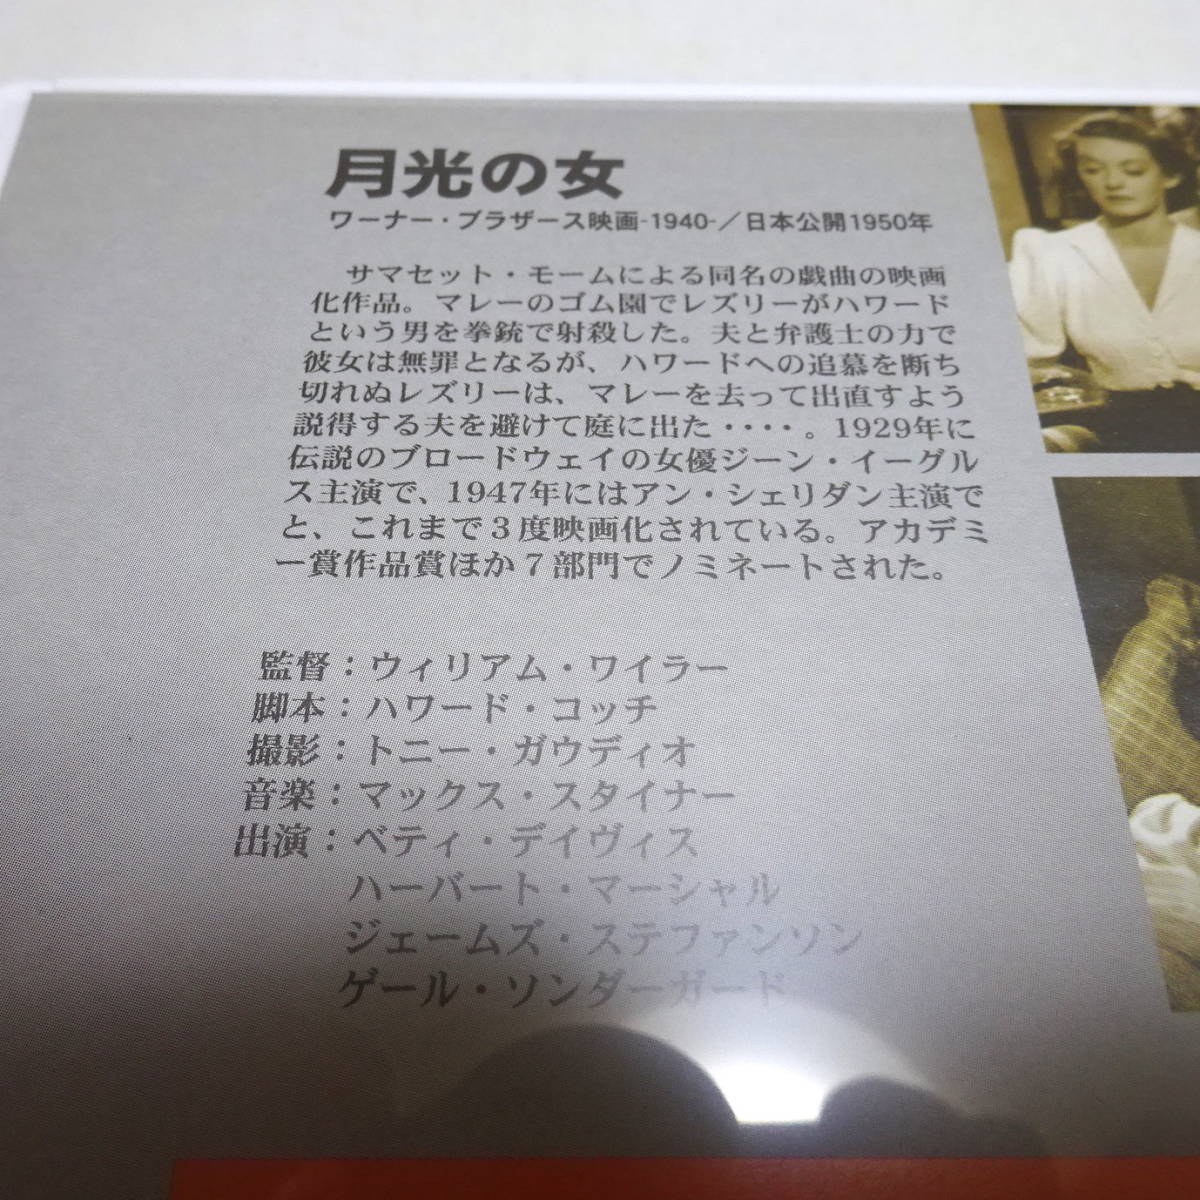 月光の女
ワーナー・ブラザース映画-1940-／日本公開1950年
サマセット・モームによる同名の戯曲の映画
化作品。マレーのゴム園でレズリーがハワード
という男を拳銃で射殺した。夫と弁護士の力で
彼女は無罪となるが、ハワードへの追慕を断ち
切れぬレズリーは、マレーを去って出直すよう
説得する夫を避けて庭に出た・・・・。1929年に
伝説のブロードウェイの女優ジーン・イーグル
ス主演で、1947年にはアン・シェリダン主演で
と、これまで３度映画化されている。アカデミ
ー賞作品賞ほか７部門でノミネートされた。
監督：ウィリアム・ワイラー
脚本：ハワード・コッチ
撮影：トニー・ガウディオ
音楽：マックス・スタイナー
出演：ベティ・デイヴィス
ハーバート・マーシャル
ジェームズ・ステファンソン
ゲール・ソンダーガード